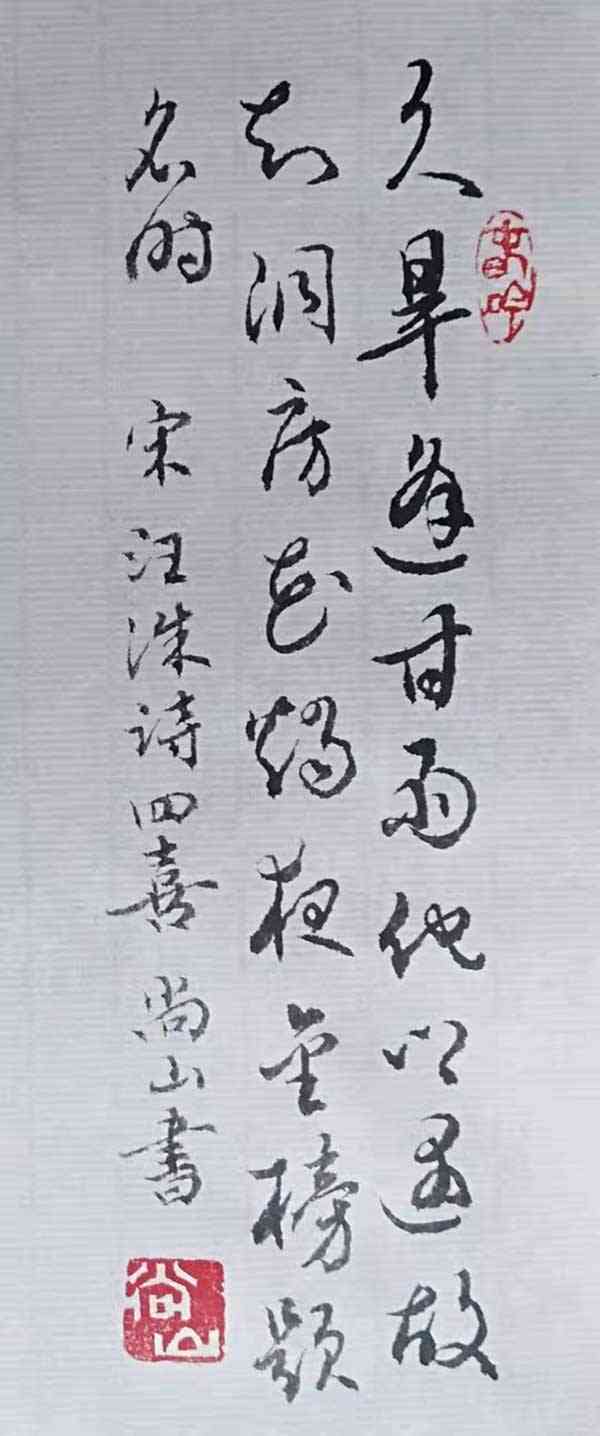 久旱逢甘雨他乡遇故
知洞房花燭夜金榜题
名时 宋汪洙诗四喜 尚山書
尚山